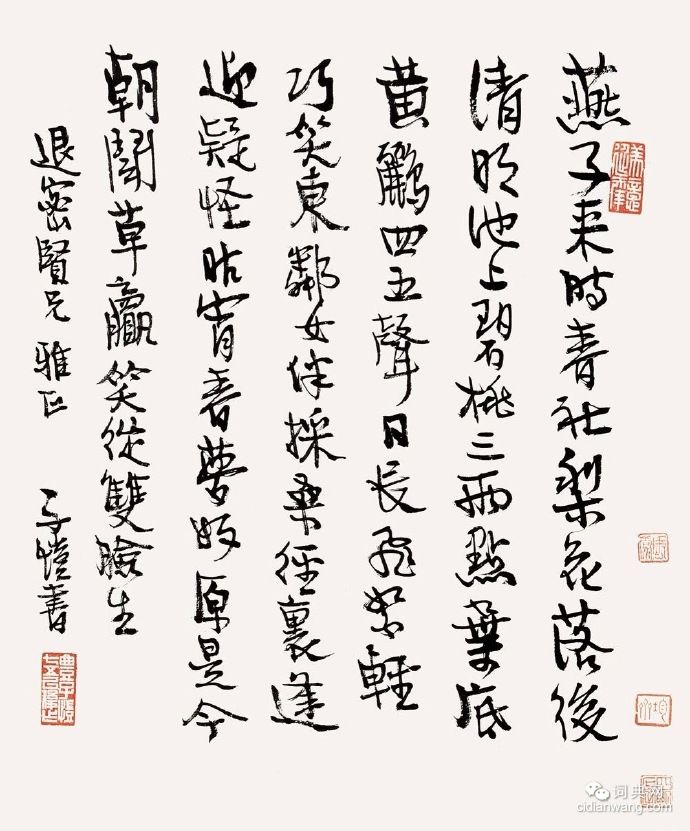 燕子来時春社梨花落後
清明池上碧桃三兩點葉底
黄鸝四五聲日長飛絮輕
巧笑東鄰女伴採桑徑裏逢
迎疑怪昨宵春夢好原是今
朝鬪草贏笑從雙臉生
退密賢兄雅正 子愷書
词典网
cidianwang.com